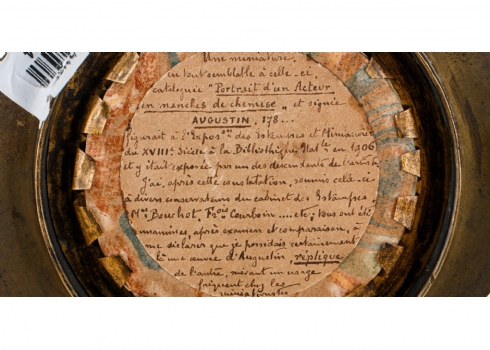 Une miniature,
en tout semblable à celle-ci,
cataloguée "Portrait d'un Acteur
en manches de chemise" et signée
AUGUSTIN, 178...
figurait à l'Exposon des Estampes et Miniatures
du XVIIIe Siècle à la Bibliothèque Natle en 1906
et y était exposée par un des descendants de l'artiste.
J'ai, après cette constatation, soumis celle-ci
à divers conservateurs du cabinet des Estampes,
Mrs Bouchot, Frois Courboin .... etc; tous ont été
unanimes, après examen et comparaison, à
me déclarer que je possédais certainement
là une œuvre d'Augustin, réplique
de l'autre, suivant un usage
fréquent chez les
miniaturistes